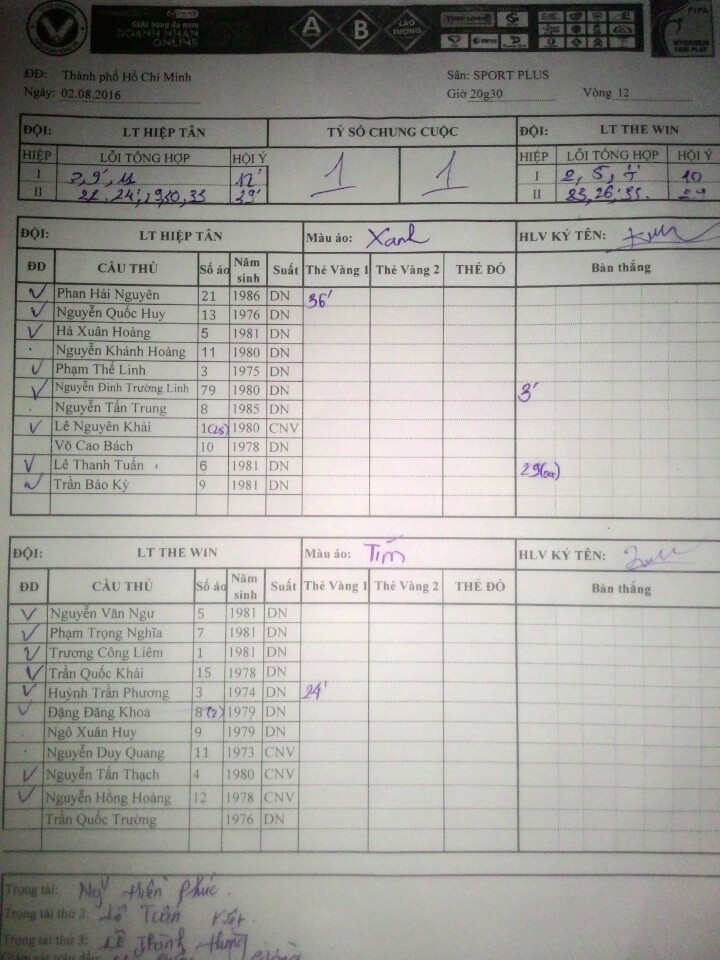 GIẢI bóng đá mini
DOANH NHÂN
ONLINE
A B LAO TƯỞNG
FIFA
ĐĐ: Thành phố Hồ Chí Minh Sân: SPORT PLUS
Ngày: 02.08.2016 Giờ 20g30 Vòng 12
ĐỘI: LT HIỆP TÂN TỶ SỐ CHUNG CUỘC ĐỘI: LT THE WIN
HIỆP LỖI TỔNG HỢP HỘI Ý 1 1 HIỆP LỖI TỔNG HỢP HỘI Ý
I 12' I 10
II II
ĐỘI: LT HIỆP TÂN Màu áo: Xanh HLV KÝ TÊN:
ĐD CẦU THỦ Số áo Năm sinh Suất Thẻ Vàng 1 Thẻ Vàng 2 THẺ ĐỎ Bàn thắng
Phan Hải Nguyên 21 1986 DN 36'
Nguyễn Quốc Huy 13 1976 DN
Hà Xuân Hoàng 5 1981 DN
Nguyễn Khánh Hoàng 11 1980 DN
Phạm Thế Linh 3 1975 DN
Nguyễn Đình Trường Linh 79 1980 DN 3'
Nguyễn Tấn Trung 8 1985 DN
Lê Nguyên Khải 1(25) 1980 CNV
Võ Cao Bách 10 1978 DN
Lê Thanh Tuấn 6 1981 DN
Trần Bảo Kỳ 9 1981 DN
ĐỘI: LT THE WIN Màu áo: Tím HLV KÝ TÊN:
ĐD CẦU THỦ Số áo Năm sinh Suất Thẻ Vàng 1 Thẻ Vàng 2 THẺ ĐỎ Bàn thắng
Nguyễn Văn Ngư 5 1981 DN
Phạm Trọng Nghĩa 7 1981 DN
Trương Công Liêm 1 1981 DN
Trần Quốc Khải 15 1978 DN
Huỳnh Trần Phương 3 1974 DN 24'
Đặng Đăng Khoa 8 1979 DN
Ngô Xuân Huy 9 1979 DN
Nguyễn Duy Quang 11 1973 CNV
Nguyễn Tấn Thạch 4 1980 CNV
Nguyễn Hồng Hoàng 12 1978 CNV
Trần Quốc Trường 1976 DN
Trọng tài:
Trọng tài thứ 2:
Trọng tài thứ 3: